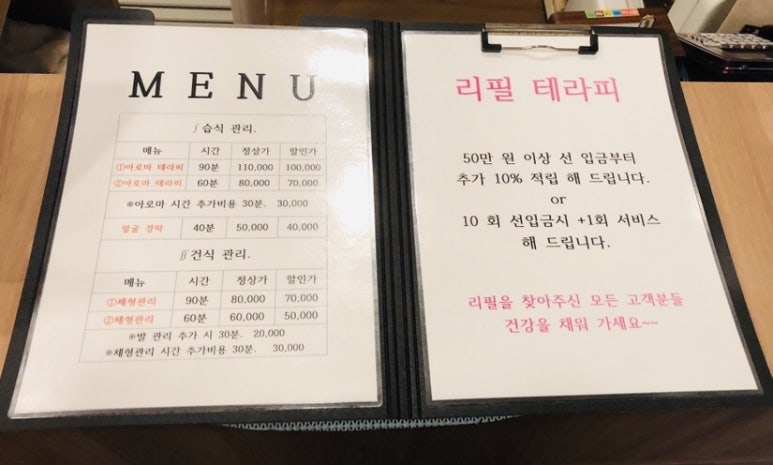 MENU
∫ 습식 관리.
메뉴 시간 정상가 할인가
①아로마 테라피 90분 110,000 100,000
②아로마 테라피 60분 80,000 70,000
※아로마 시간 추가비용 30분. 30,000
얼굴 경락 40분 50,000 40,000
∬ 건식 관리.
메뉴 시간 정상가 할인가
①체형관리 90분 80,000 70,000
②체형관리 60분 60,000 50,000
※발 관리 추가 시 30분. 20,000
※체형관리 시간 추가비용 30분. 30,000
리필 테라피
50만 원 이상 선 입금부터
추가 10% 적립 해 드립니다.
or
10 회 선입금시 +1회 서비스
해 드립니다.
리필을 찾아주신 모든 고객분들
건강을 채워 가세요~~